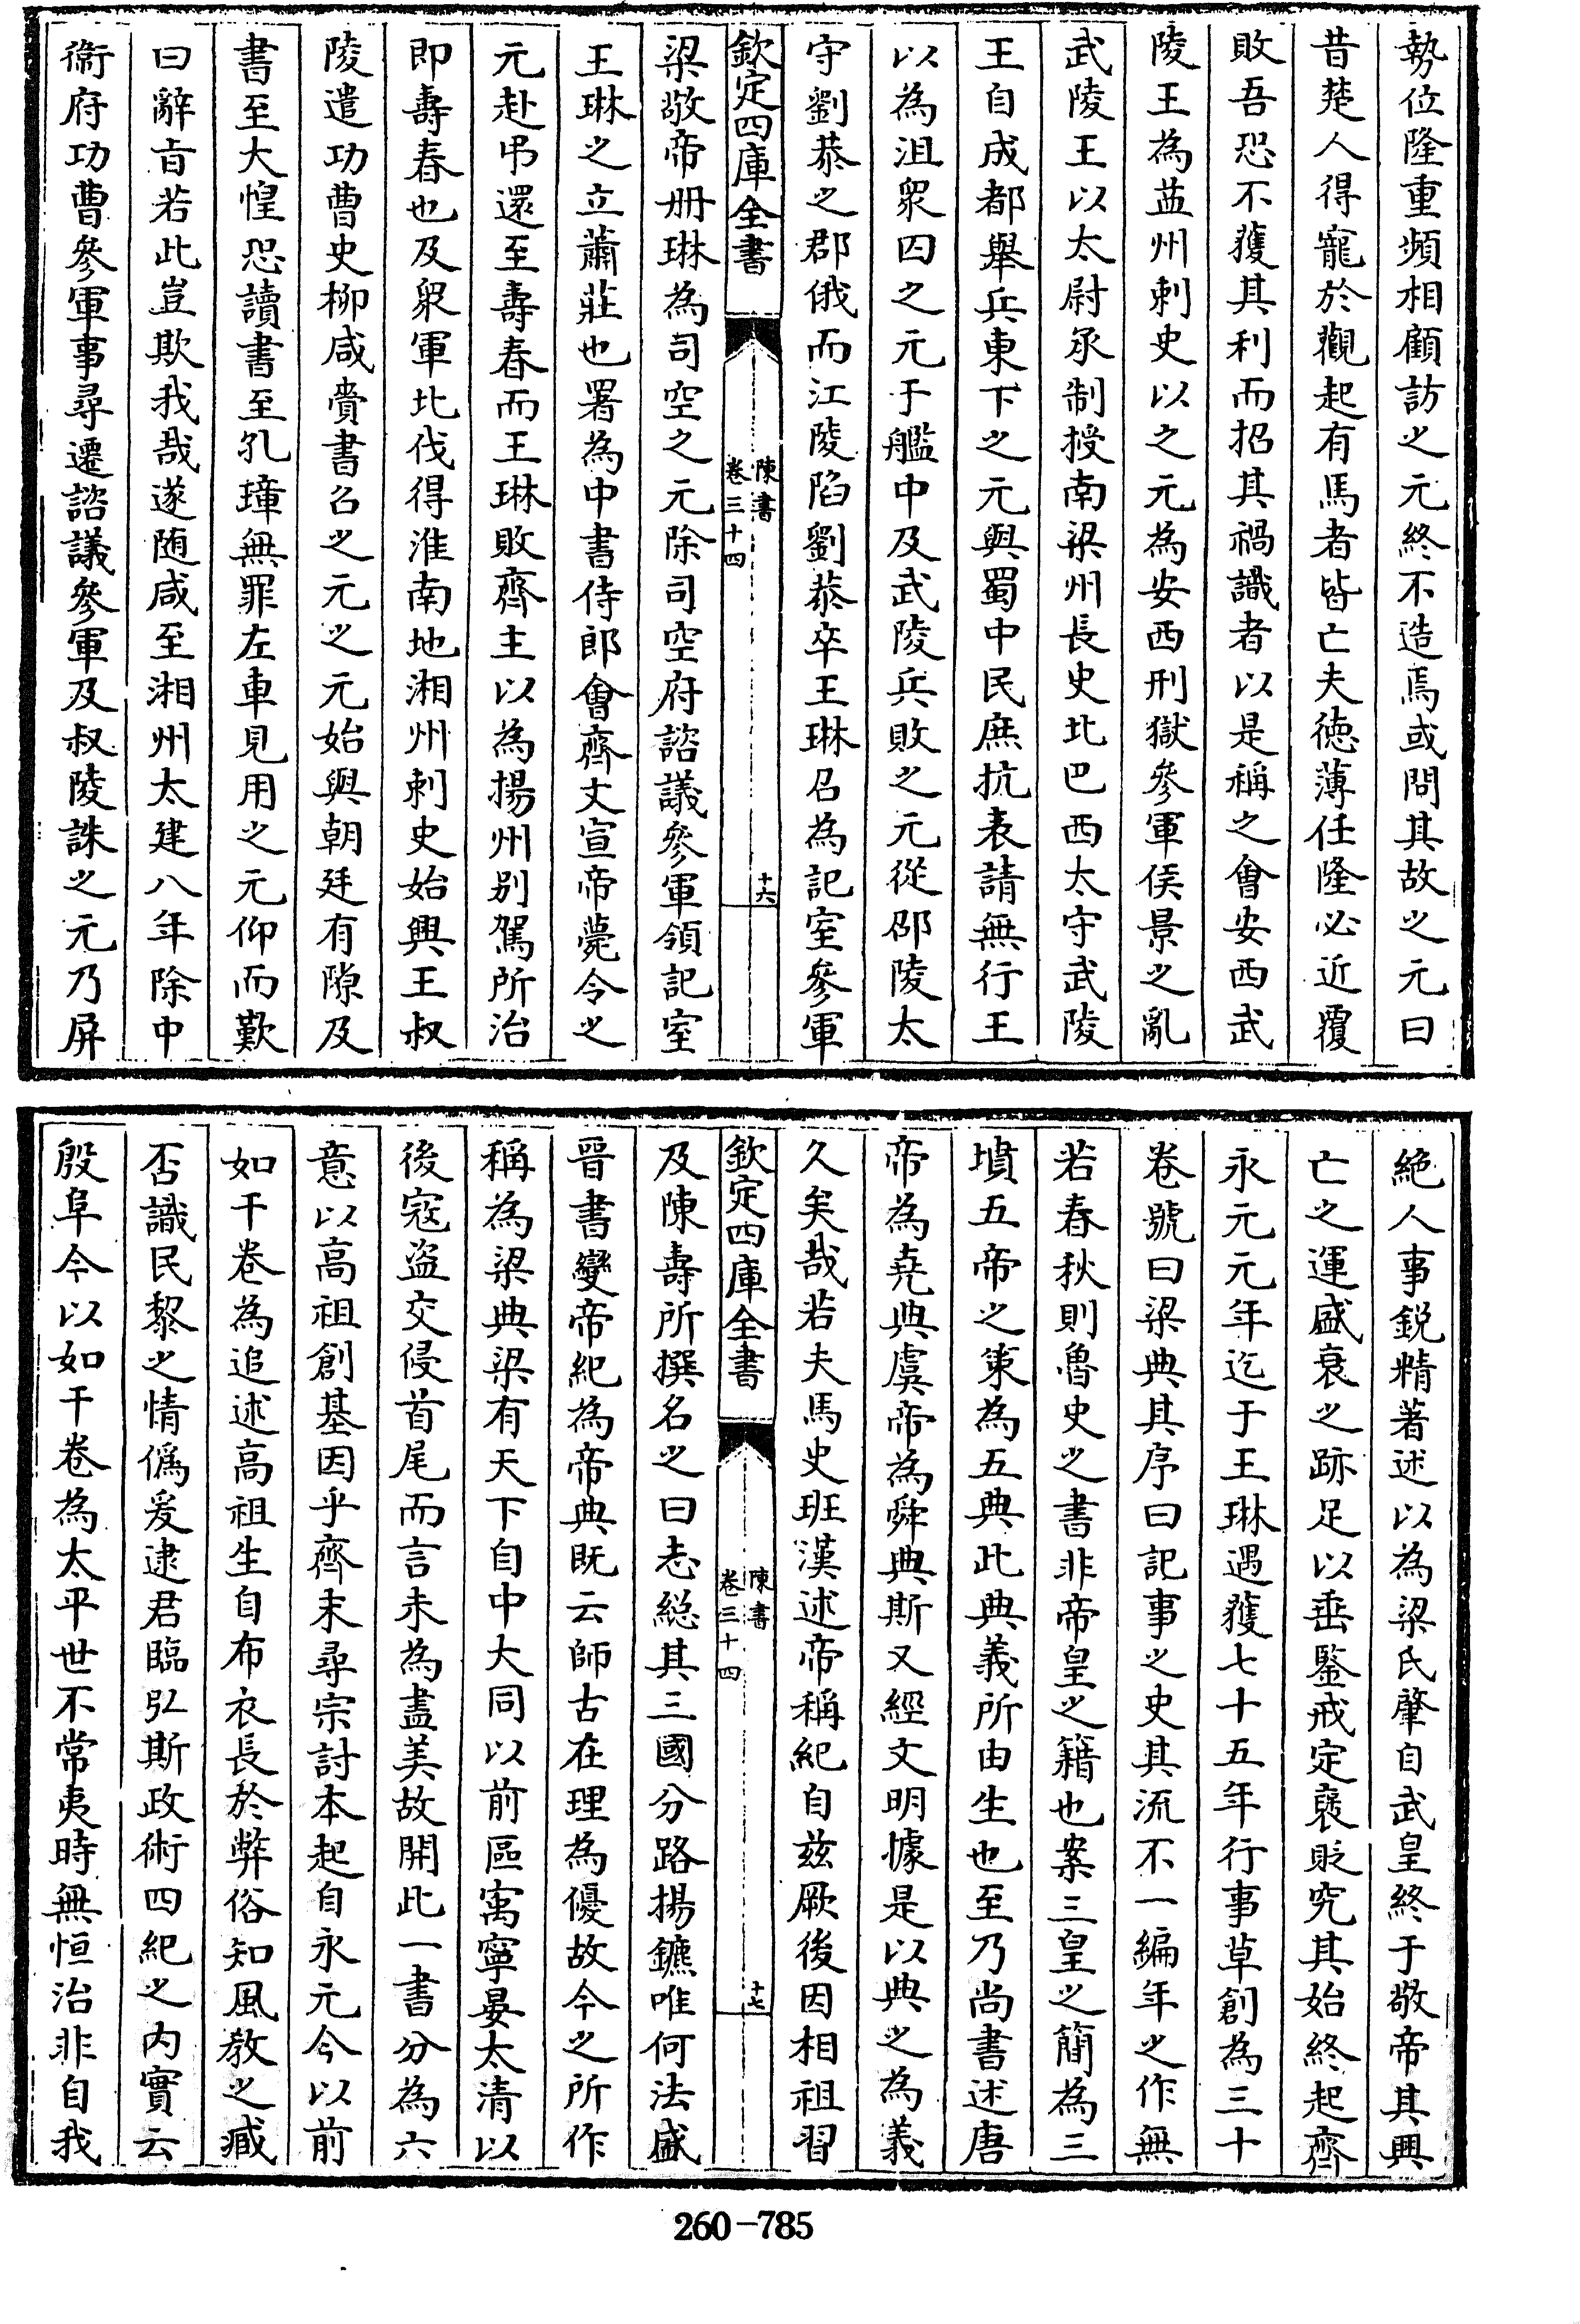 勢位隆重頻相顧訪之元終不造焉或問其故之元曰
昔楚人得寵於觀起有馬者皆亡夫德薄任隆必近覆
敗吾恐不獲其利而招其禍識者以是稱之會安西武
陵王為益州刺史以之元為安西刑獄參軍侯景之亂
武陵王以太尉承制授南梁州長史北巴西太守武陵
王自成都舉兵東下之元與蜀中民庶抗表請無行王
以為沮衆囚之元于艦中及武陵兵敗之元從邵陵太
守劉恭之郡俄而江陵陷劉恭卒王琳召為記室參軍
欽定四庫全書
陳書
卷三十四
十六
梁敬帝册琳為司空之元除司空府諮議參軍領記室
王琳之立蕭莊也署為中書侍郎會齊文宣帝薨令之
元赴弔還至壽春而王琳敗齊主以為揚州别駕所治
即壽春也及衆軍北伐得淮南地湘州刺史始興王叔
陵遣功曹史柳咸賫書召之元之元始與朝廷有隙及
書至大惶恐讀書至孔璋無罪左車見用之元仰而歎
曰辭㫖若此豈欺我哉遂随咸至湘州太建八年除中
衞府功曹參軍事尋遷諮議參軍及叔陵誅之元乃屏
絶人事鋭精著述以為梁氏肇自武皇終于敬帝其興
亡之運盛衰之跡足以垂鑒戒定襃貶究其始終起齊
永元元年迄于王琳遇獲七十五年行事草創為三十
卷號曰梁典其序曰記事之史其流不一編年之作無
若春秋則魯史之書非帝皇之籍也案三皇之簡為三
墳五帝之策為五典此典義所由生也至乃尚書述唐
帝為堯典虞帝為舜典斯又經文明據是以典之為義
久矣哉若夫馬史班漢述帝稱紀自兹厥後因相祖習
欽定四庫全書
陳書
卷三十四
十七
及陳壽所撰名之曰志総其三國分路揚鑣唯何法盛
晉書變帝紀為帝典既云師古在理為優故今之所作
稱為梁典梁有天下自中大同以前區寓寧晏太清以
後寇盗交侵首尾而言未為盡美故開此一書分為六
意以高祖創基因乎齊末尋宗討本起自永元今以前
如干卷為追述高祖生自布衣長於弊俗知風教之臧
否識民黎之情僞爰逮君臨弘斯政術四紀之内實云
殷阜今以如干卷為太平世不常夷時無恒治非自我
260-785